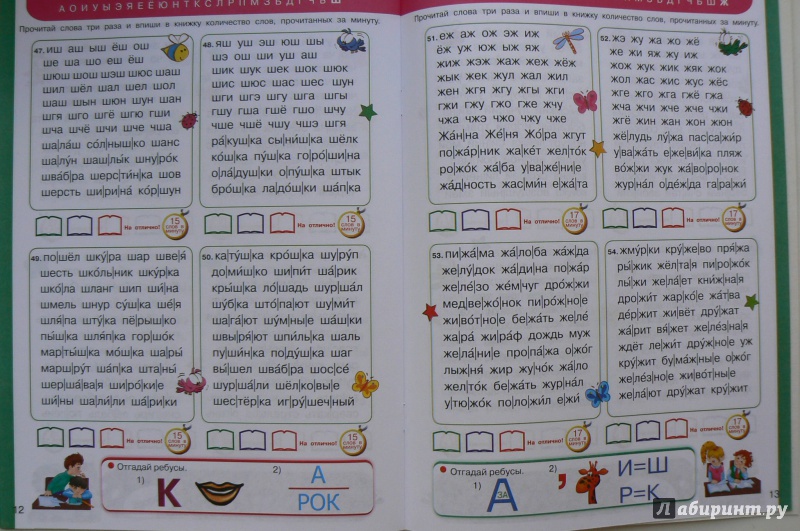 А О И У Ы Э Я Е Ё Ю Н Т К С Л Р П М З Б Д Г Ч Ь Ш
Прочитай слова три раза и впиши в книжку количество слов, прочитанных за минуту.
47. иш аш ыш ёш ош
ше ша шо еш ёш
шюш шош шэш шюс шаш
шил шёл шал шел шол
шаш шын шюн шун шан
шгя шго шгё шгю гши
шча шчё шчи шче чша
ша|ла́ш со́л|ныш|ко шанс
ша|лу́н шаш|лы́к шну|ро́к
шва́б|ра шерс|ти́н|ка шов
шерсть ши|ри|на́ ко́р|шун
На отлично! 15 слов в минуту
48. яш уш эш юш шы
шэ ош ши уш аш
шик шук шек шок шюк
шис шюс шас шес шун
шги шгэ шгу шга шгы
гшу гша гшё гшо шчу
чше чшё чшу чшэ шгя
ра́|куш|ка сы|ни́ш|ка шёлк
ко́ш|ка пу́ш|ка го|ро́|ши|на
о|ла́|душ|ки о|пу́ш|ка штык
бро́ш|ка ла|до́ш|ки ша́п|ка
На отлично! 15 слов в минуту
49. по|шёл шку́|ра шар шве|я́
шесть шко́ль|ник шку́р|ка
шко́|ла шланг шип ши́|на
шмель шнур су́ш|ка ше́|я
шля́|па шту́|ка пё|рыш|ко
пы́ш|ка шля́п|ка гор|шо́к
мар|ты́ш|ка мо́ш|ка ша|ры́
марш|ру́т ша́п|ка шта|ны́
шер|ша́|ва|я ши|ро́|ки|е
ши́|ны ша|ли́|ли ша́|ри|ки
На отлично! 15 слов в минуту
50. ка|ту́ш|ка кро́ш|ка шу|ру́п
до́|миш|ко ши|пи́т ша́|рик
кры́ш|ка ло́|шадь шур|ша́л
шу́б|ка што́|па|ют шу|ми́т
ша|га́|ют шу́м|ны|е ша́ш|ки
швы|ря́|ют шпи́ль|ка шаль
пу|ши́н|ка по|ду́ш|ка шаг
вы́|шел шва́б|ра шос|се́
шур|ша́|ли шёл|ко́|вы|е
шес|тёр|ка иг|ру́|шеч|ный
На отлично! 15 слов в минуту
Отгадай ребусы.
1) К
2) А
РОК
12
Прочитай слова три раза и впиши в книжку количество слов, прочитанных за минуту.
51. еж аж ож эж иж
ёж уж юж ыж яж
жиж жэж жаж жеж жёж
жык жек жул жал жил
жен жгя жгу жгы жги
гжи гжу гжо гже жчу
чжа чжэ чжо чжу чже
Жа́н|на Же́|ня Жо́|ра жгут
по|жа́р|ник жа|ке́т жел|то́к
ро|жо́к жа́|ба у|ва|же́|ни|е
жа́д|ность жас|ми́н е|жа́|та
На отлично! 17 слов в минуту
52. жэ жу жа жо жё
же жи яж жу иж
жож жук жик жяк жок
жол жас жис жус жёс
жге жго жга гжё гжа
жча жчи жче жче чжи
жгё жин жан жон жюн
жё|лудь лу́|жа пас|са|жи́р
у|ва|жа́ть е|же|ви́|ка пляж
во́|жжи жук жа́|во|ро|нок
жур|на́л о|де́ж|да га|ра|жи́
На отлично! 17 слов в минуту
53. пи|жа́|ма жа́|ло|ба жа́ж|да
же|лу́|док жа́|ди|на по|жа́р
же|ле́|зо же́м|чуг дро́ж|жи
мед|ве|жо́|нок пи|ро́ж|но|е
жи|во́т|но|е бе|жа́ть же|ле́
жа|ра́ жи|ра́ф дождь муж
же|ла́|ни|е про|па́|жа о|жо́г
лыж|ня́ жир жу|чо́к жа́|ло
жел|то́к бе|жа́ть жур|на́л
у|тю|жо́к по|ло|жи́л е|жи́
На отлично! 17 слов в минуту
54. жму́р|ки кру́|же|во пря́|жа
ры́|жик жёл|та|я пи|ро|жо́к
лы́|жи же|ла́|ет кни́ж|на|я
дро|жи́т жар|ко́|е жа́т|ва
де́р|жит жи|вёт дру|жа́т
жа́|рит вя́|жет же|ле́з|на|я
ждёт ле|жи́т дру́ж|но|е уж
кру́|жит бу|ма́ж|ны|е о|жо́г
же|ле́з|но|е жи|во́т|ны|е
же|ла́|ют дру|жа́т кру́|жит
На отлично! 17 слов в минуту
Отгадай ребусы.
1) А
ЗА
2) ’
И=Ш
Р=К
13
Лабиринт.ру